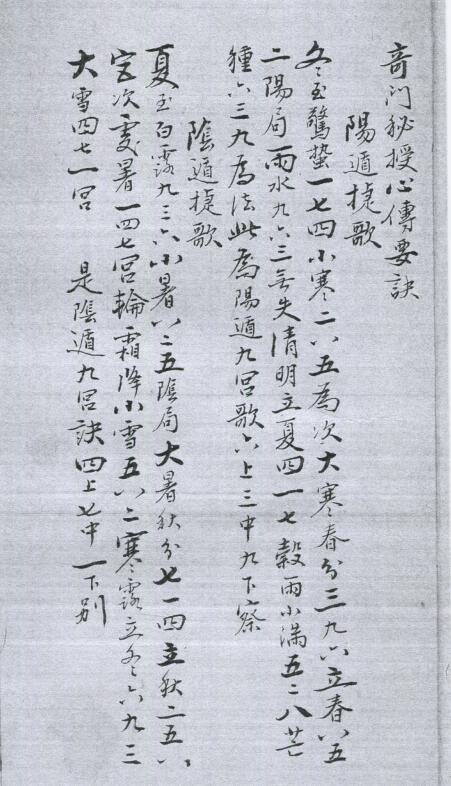 奇门秘授心傳要訣
陽遁捷歌
冬至驚蟄一七四小寒二八五為次大寒春分三九六立春八五
二陽局雨水九六三無失清明立夏四一七穀雨小滿五二八芒
種六三九為法此為陽遁九宮歌六上三中九下察
陰遁捷歌
夏至白露九三六小暑八二五陰局大暑秋分七一四立秋二五八
定次處暑一四七宮輪霜降小雪五八二寒露立冬六九三
大雪四七一宮 是陰遁九宮訣四上七中一下別